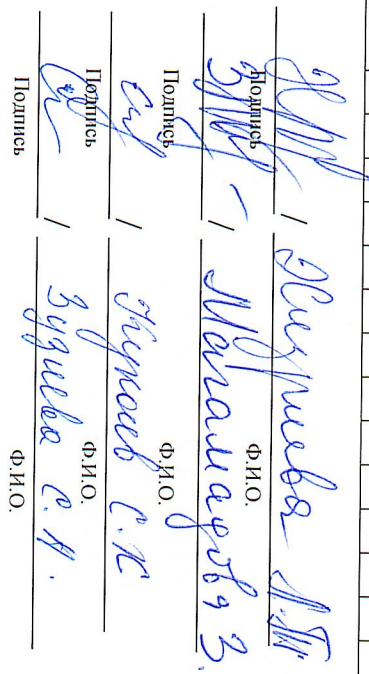 / Хизриева Л.М
Подпись Ф.И.О.
/ Магамадова З.
Подпись Ф.И.О.
/ Кукоев С.К
Подпись Ф.И.О.
/ Зузиева С.А.
Подпись Ф.И.О.